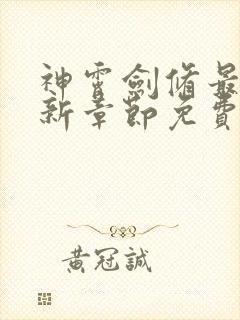 神霄劍脩最
新章節免費
黃冠誠